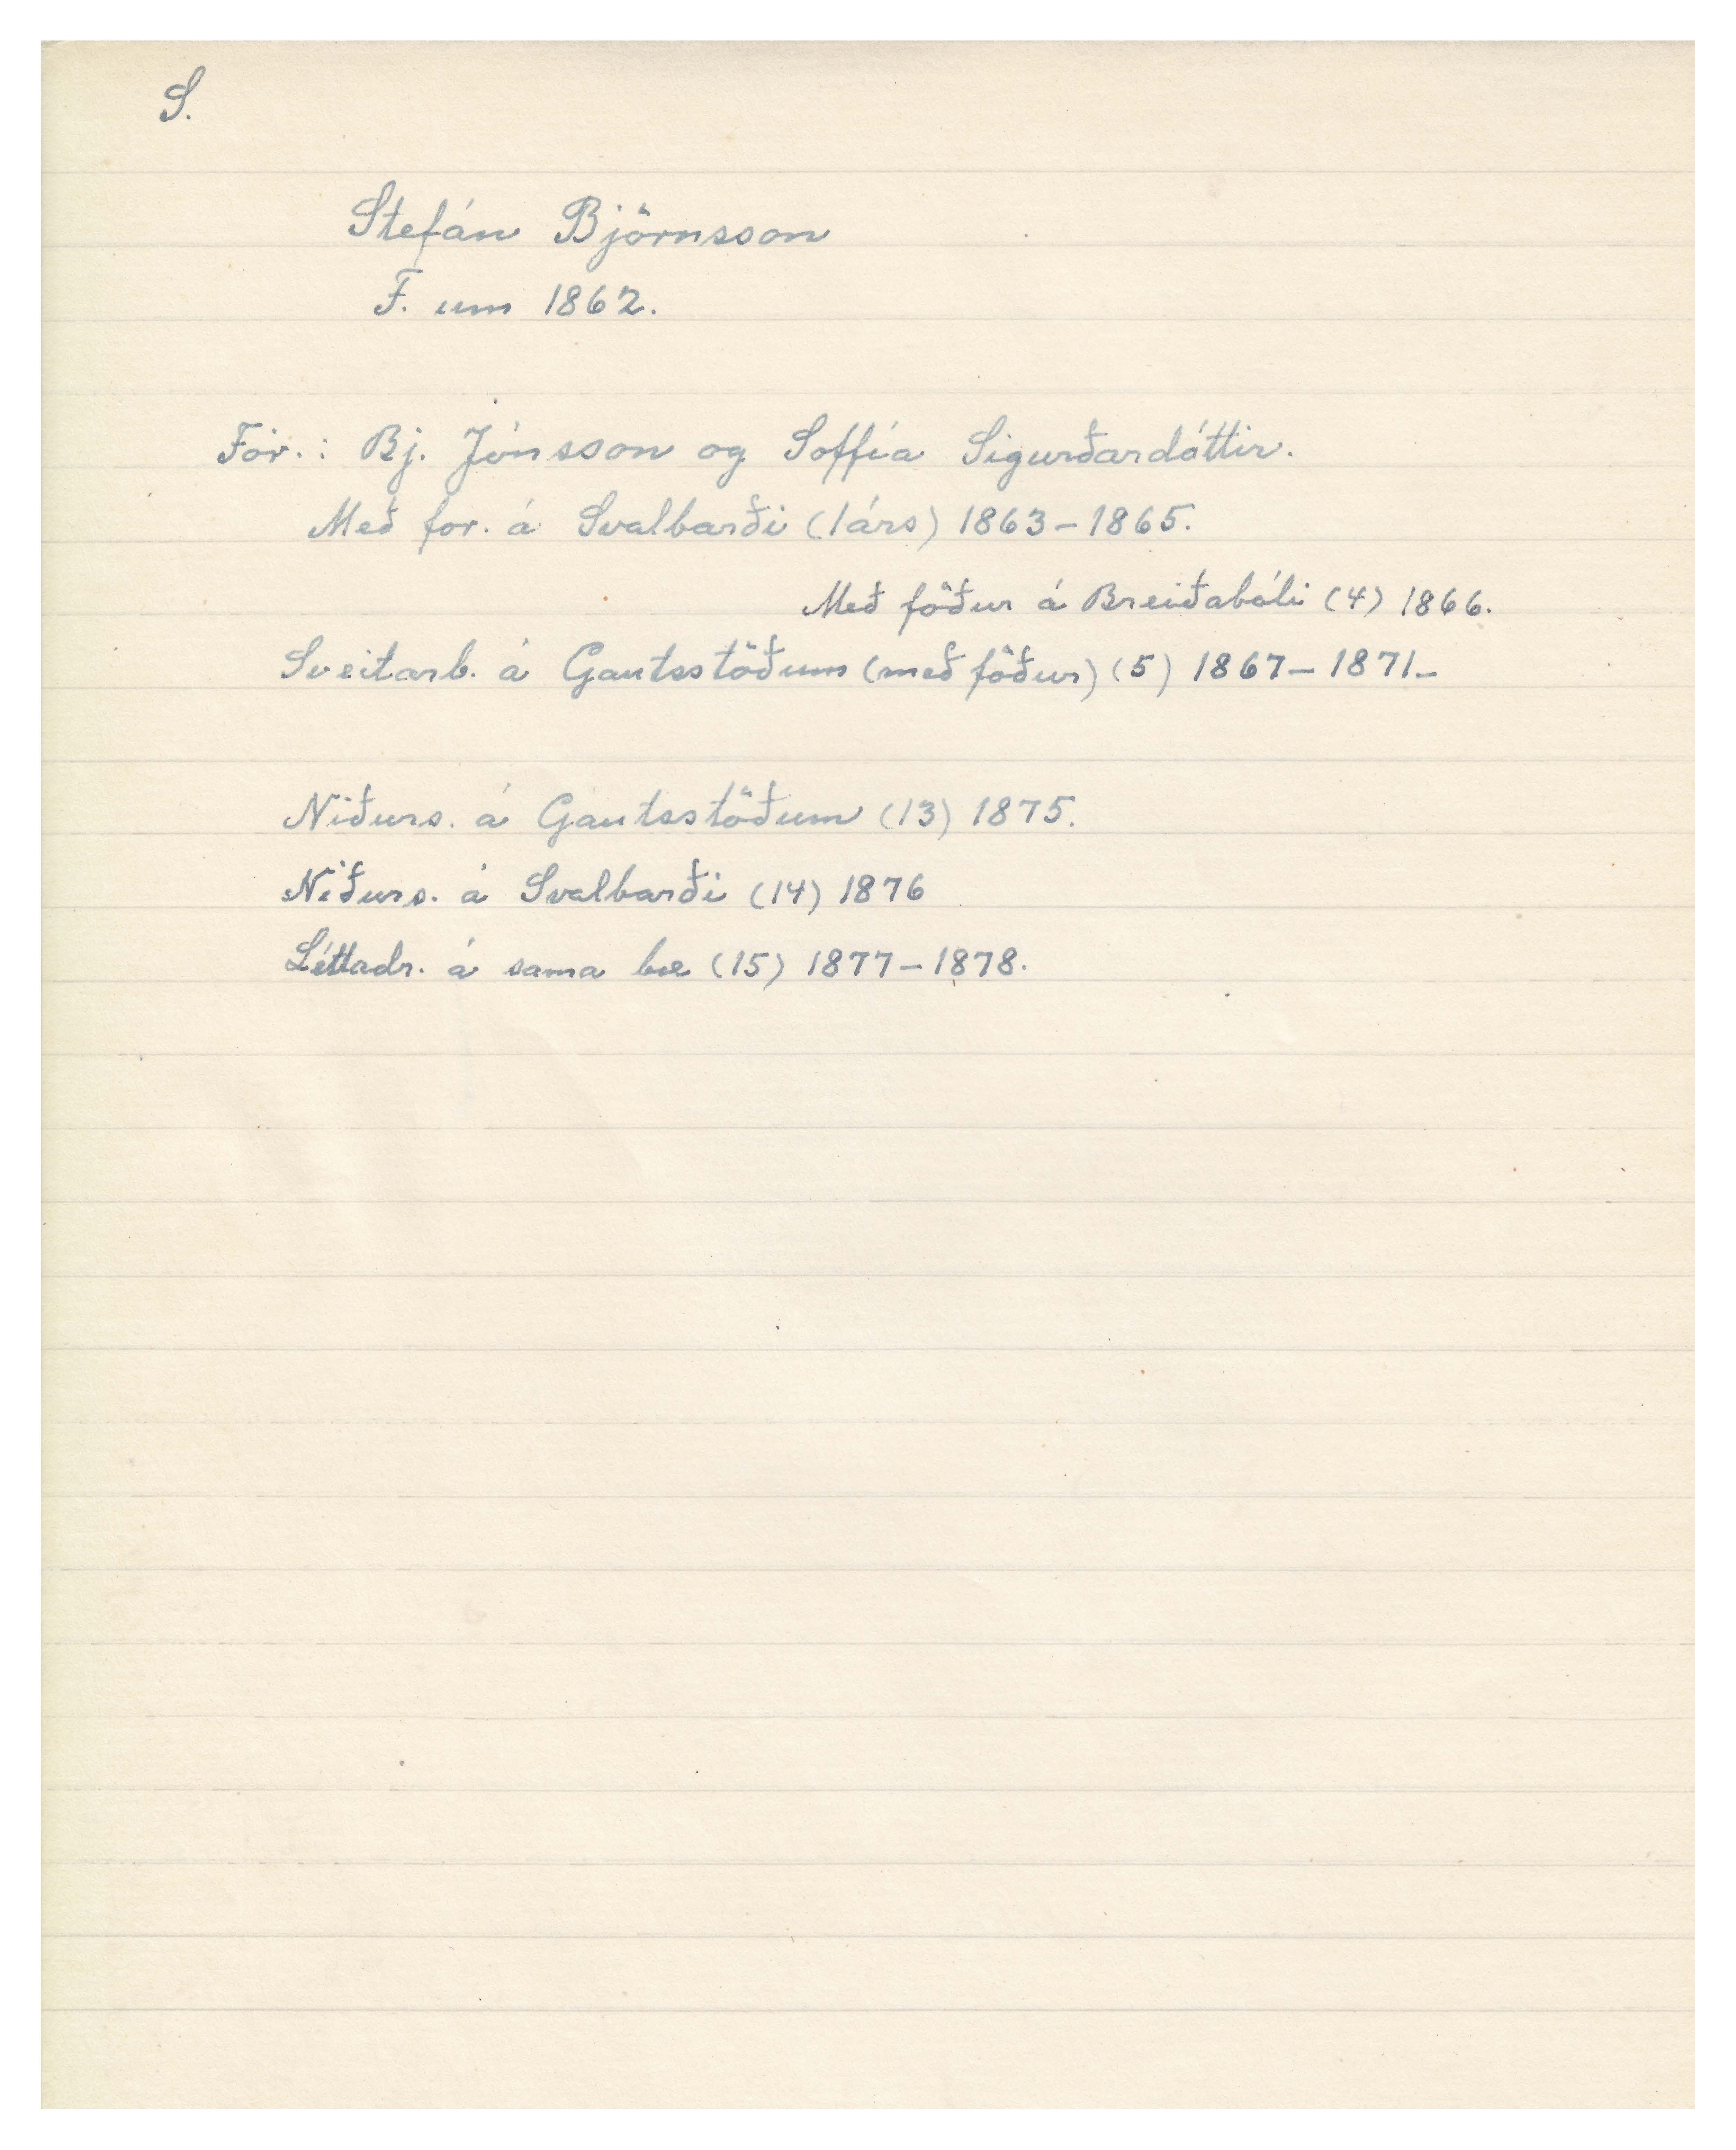 S.
Stefán Björnsson
F. um 1862.
For.: Bj. Jónsson og Soffía Sigurðardóttir.
Með for. á Svalbarði (1árs) 1863-1865.
Með föður á Breiðabóli (4) 1866.
Sveitarb. á Gautsstöðum (með föður) (5) 1867-1871-
Niðurs. á Gautsstöðum (13) 1875.
Niðurs. á Svalbarði (14) 1876
Léttadr. á sama bæ (15) 1877-1878.